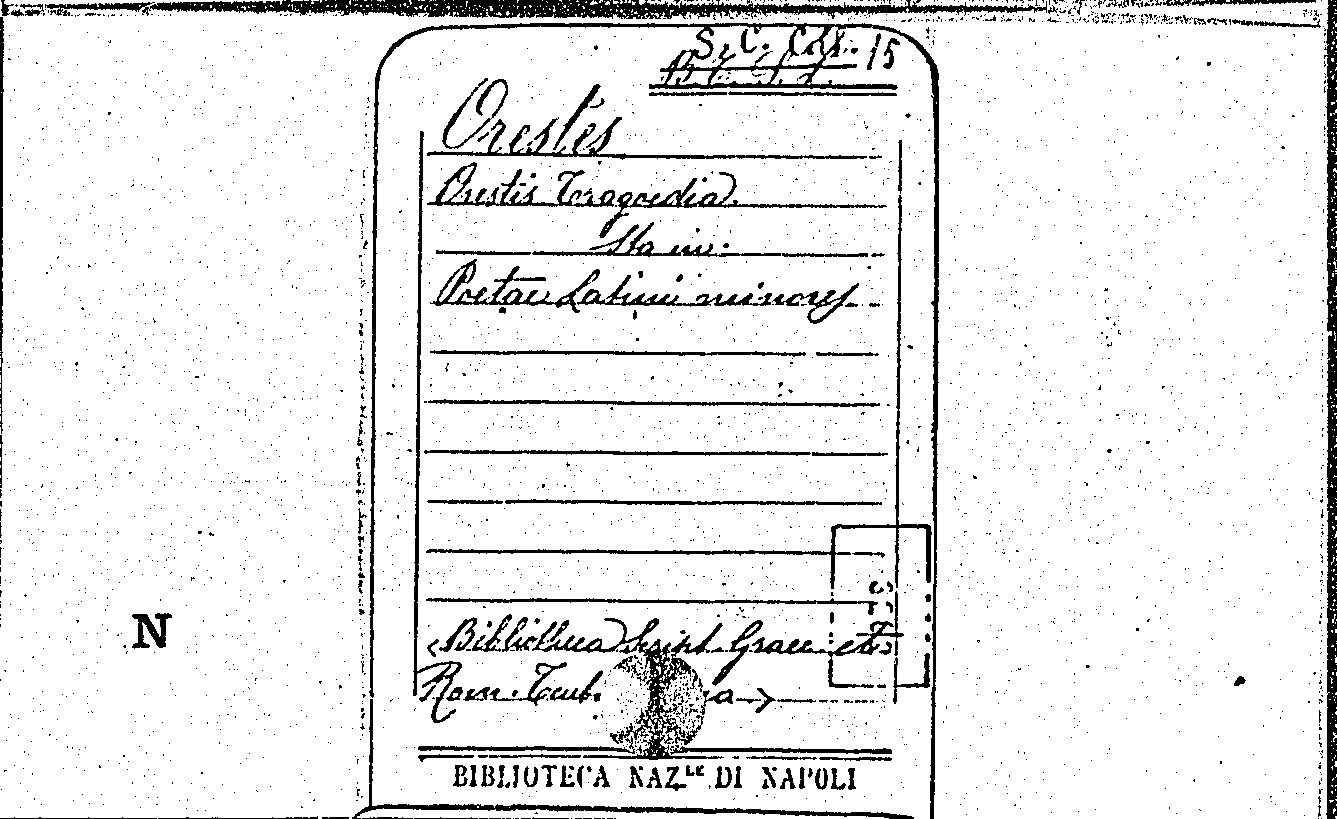 S. C. Coll. 15
Orestes
Orestis Tragoedia.
Sta in:
Poetae Latini minores
N
<Bibliotheca Script. Graec. et
Rom. Teub. a>
BIBLIOTECA NAZ.LE DI NAPOLI